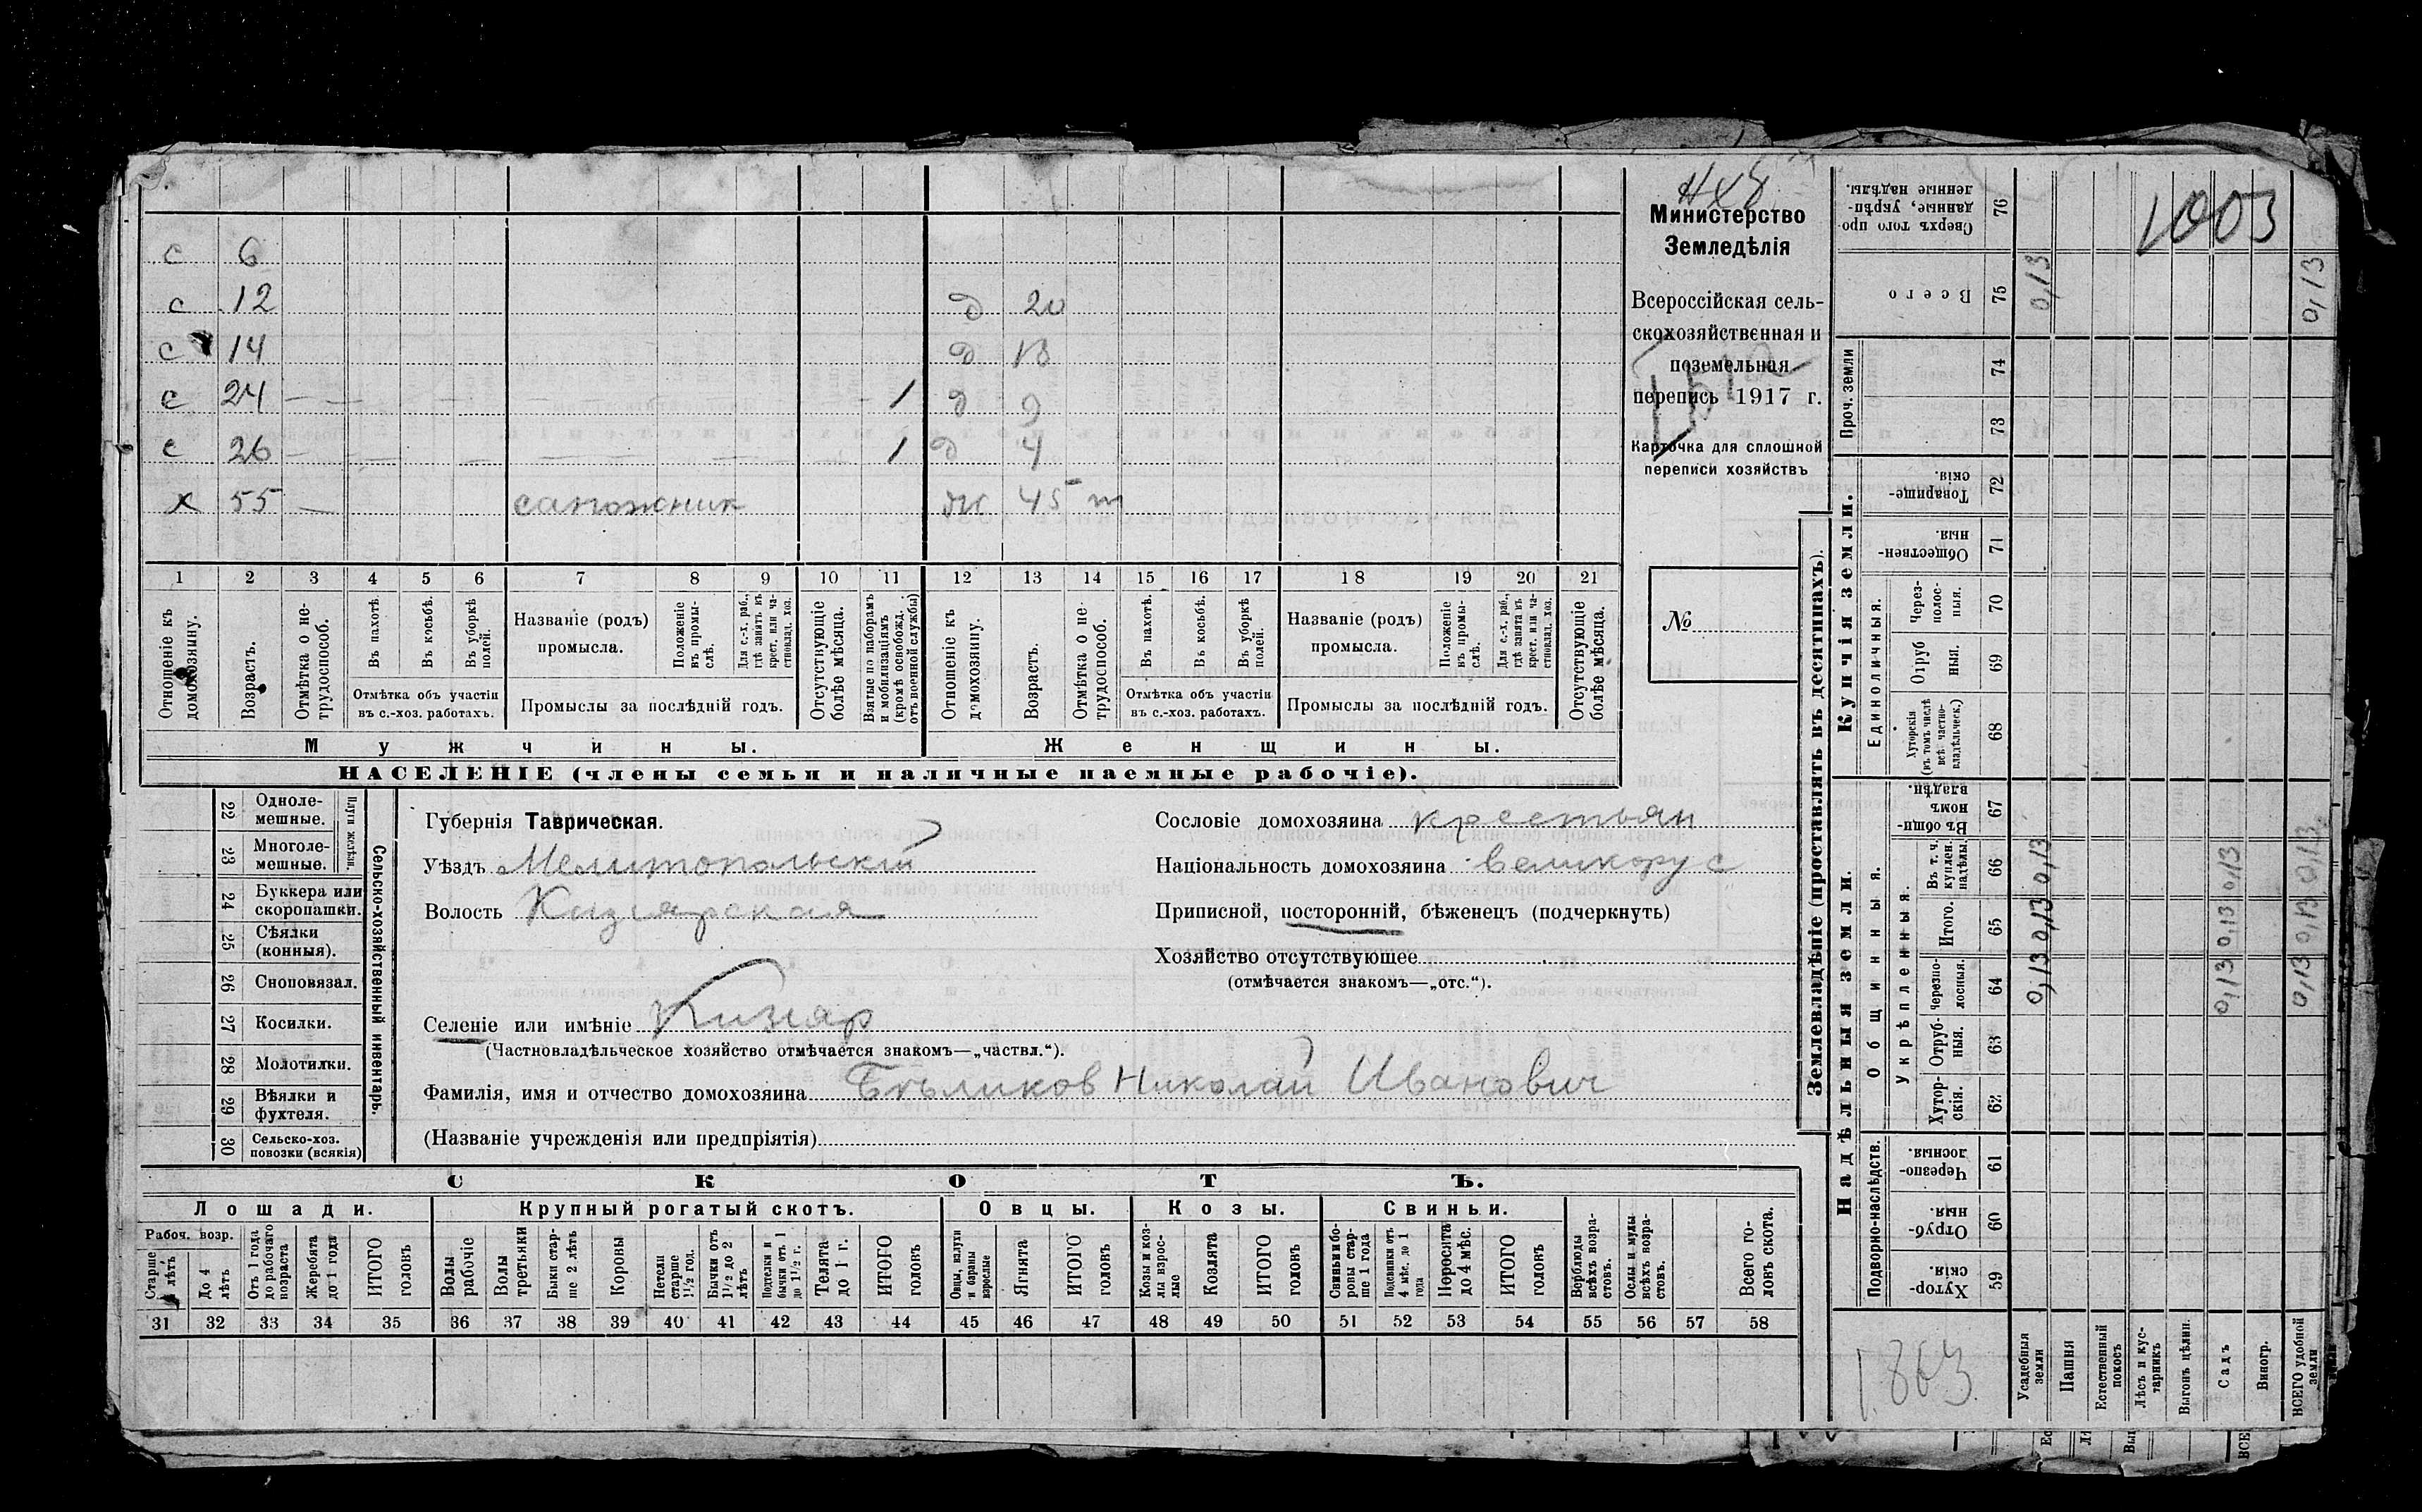 с 6
с 12 д 20
с 14 д 13
с 24 — 1 д 9
с 26 — 1 д 4
х 55 — сапожник ж 45 т
1 2 3 4 5 6 7 8 9 10 11 12 13 14 15 16 17 18 19 20 21
Отношеніе къ домохозяину.
Возрастъ.
Отмѣтка о нетрудоспособ.
Въ пахотѣ.
Въ косьбѣ.
Въ уборкѣ полей.
Отмѣтка объ участіи
въ с.-хоз. работахъ.
Названіе (родъ)
промысла.
Положеніе въ промыслѣ.
Для с.-х. раб., гдѣ занятъ въ крест. или частновлад. хоз.
Промыслы за послѣдній годъ.
Отсутствующіе болѣе мѣсяца.
Взятые по наборамъ и мобилизаціямъ (кромѣ освобожд. отъ военной службы)
Отношеніе къ домохозяину.
Возрастъ.
Отмѣтка о нетрудоспособ.
Въ пахотѣ.
Въ косьбѣ.
Въ уборкѣ полей.
Отмѣтка объ участіи
въ с.-хоз. работахъ.
Названіе (родъ)
промысла.
Положеніе въ промыслѣ.
Для с.-х. раб., гдѣ занята въ крест. или частновлад. хоз.
Промыслы за послѣдній годъ.
Отсутствующіе болѣе мѣсяца.
Мужчины.
Женщины.
НАСЕЛЕНІЕ (члены семьи и наличные наемные рабочіе).
Министерство
Земледѣлія
Всероссійская сель-
скохозяйственная и
поземельная
перепись 1917 г.
Карточка для сплошной
переписи хозяйствъ
№
22 Одноле-
мешные.
23 Многоле-
мешные.
Плуги желѣзн.
24 Буккера или
скоропашки.
25 Сѣялки
(конныя).
26 Сноповязал.
27 Косилки.
28 Молотилки.
29 Вѣялки и
фухтеля.
30 Сельско-хоз.
повозки (всякія)
Сельско-хозяйственный инвентарь.
Губернія Таврическая.
Уѣздъ Мелитопольскій
Волость Кизіярская
Селеніе или имѣніе Кизіяр
(Частновладѣльческое хозяйство отмѣчается знакомъ—„частвл.“).
Фамилія, имя и отчество домохозяина Бѣликов Николай Иванович
(Названіе учрежденія или предпріятія)
Сословіе домохозяина крестьян
Національность домохозяина великорус
Приписной, посторонній, бѣженецъ (подчеркнуть)
Хозяйство отсутствующее
(отмѣчается знакомъ—„отс.“).
СКОТЪ.
Лошади. Крупный рогатый скотъ. Овцы. Козы. Свиньи.
Рабоч. возр.
До 4 лѣтъ
Отъ 1 года до рабочаго возраста
Жеребята до 1 года
ИТОГО головъ
Волы рабочіе
Волы третьяки
Быки старше 2 лѣтъ
Коровы
Нетели старше 1½ год.
Бычки отъ 1½ до 2 лѣтъ
Подтелки и бычки отъ 1 до 1½ г.
Телята до 1 г.
ИТОГО головъ
Овцы, валухи и бараны взрослые
Ягнята
ИТОГО головъ
Козы и козлы взрослые
Козлята
ИТОГО головъ
Свиньи и боровы старше 1 года
Подсвинки отъ 4 мѣс. до 1 года
Поросята до 4 мѣс.
ИТОГО головъ
Верблюды всѣхъ возрастовъ.
Ослы и мулы всѣхъ возрастовъ.
Всего головъ скота.
31 32 33 34 35 36 37 38 39 40 41 42 43 44 45 46 47 48 49 50 51 52 53 54 55 56 57 58
Землевладѣніе (проставлять въ десятинахъ).
Надѣльныя земли.
Купчія земли.
Проч. земли
Подворно-наслѣдств.
Общинныя.
Укрѣпленныя.
Единоличныя.
59 Хутор-
скія.
60 Отруб-
ныя.
61 Черезпо-
лосныя.
62 Хутор-
скія.
63 Отруб-
ныя.
64 Черезпо-
лосныя. 0,13 0,13 0,13
65 Итого. 0,13 0,13 0,13
66 Въ т. ч. куплен. надѣлы. 0,13 0,13 0,13
67 Въ общи-
номъ
владѣн.
68 Хуторскія
(въ томъ числѣ
всѣ частно-
владѣльческ.)
69 Отруб
ныя.
70 Через-
полос-
ныя.
71 Обществен-
ныя.
72 Товарище-
скія.
73
74
75 Всего 0,13 0,13
76 Сверхъ того про-
данные, укрѣп-
ленные надѣлы.
1003
1.863
Усадебныя земли
Пашня
Естественный покосъ
Лѣсъ и кустарникъ
Выгонъ цѣлин.
Садъ
Виногр.
ВСЕГО удобной земли